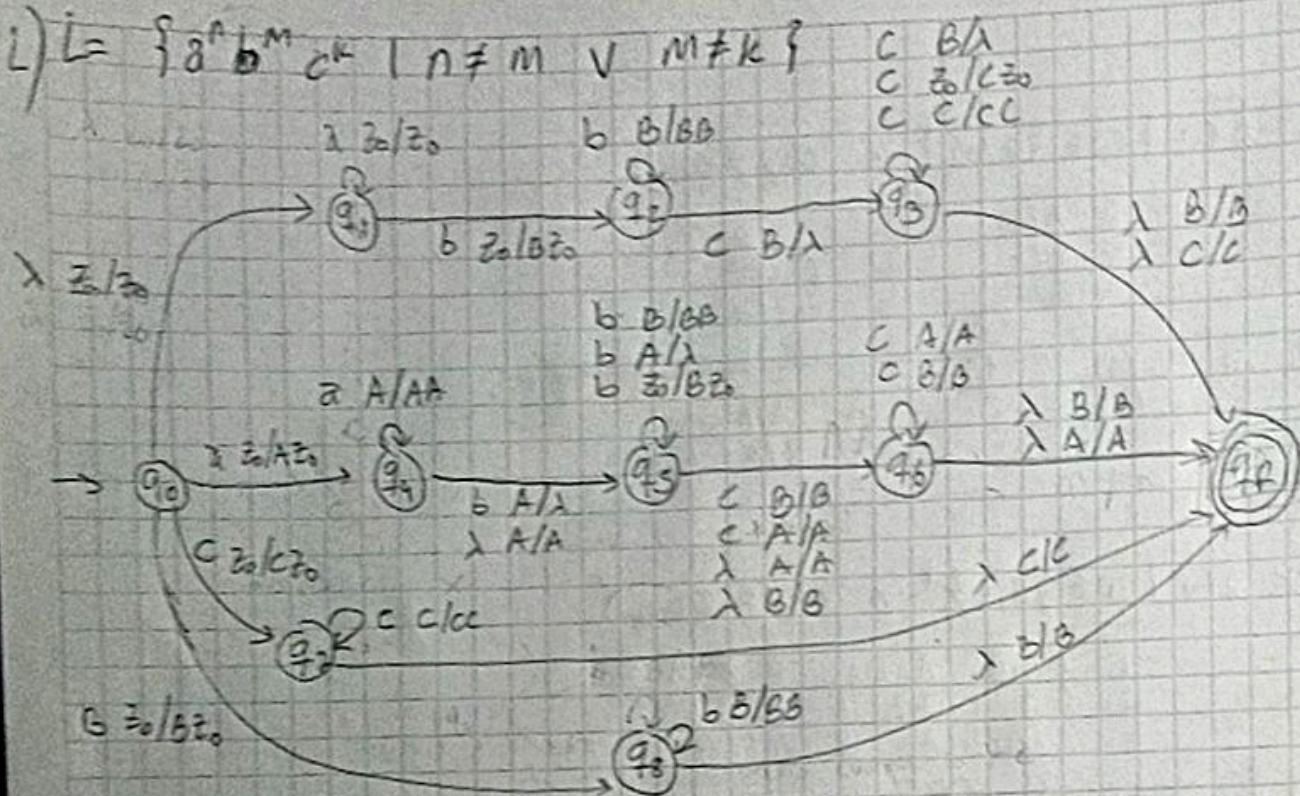 i) L = { a^n b^m c^k | n ≠ m ∨ m ≠ k }
c B/λ
c z₀/Cz₀
c C/CC
a z₀/z₀
b B/BB
q₁
q₂
q₃
b z₀/Bz₀
c B/λ
λ B/B
λ C/C
λ z₀/z₀
b B/BB
b A/λ
b z₀/Bz₀
c A/A
c B/B
a A/AA
λ B/B
λ A/A
q₀
a z₀/Az₀
q₄
q₅
q₆
q_f
b A/λ
λ A/A
c B/B
c A/A
λ A/A
λ B/B
c z₀/Cz₀
c C/CC
λ C/C
q₇
λ B/B
b z₀/Bz₀
b B/BB
q₈